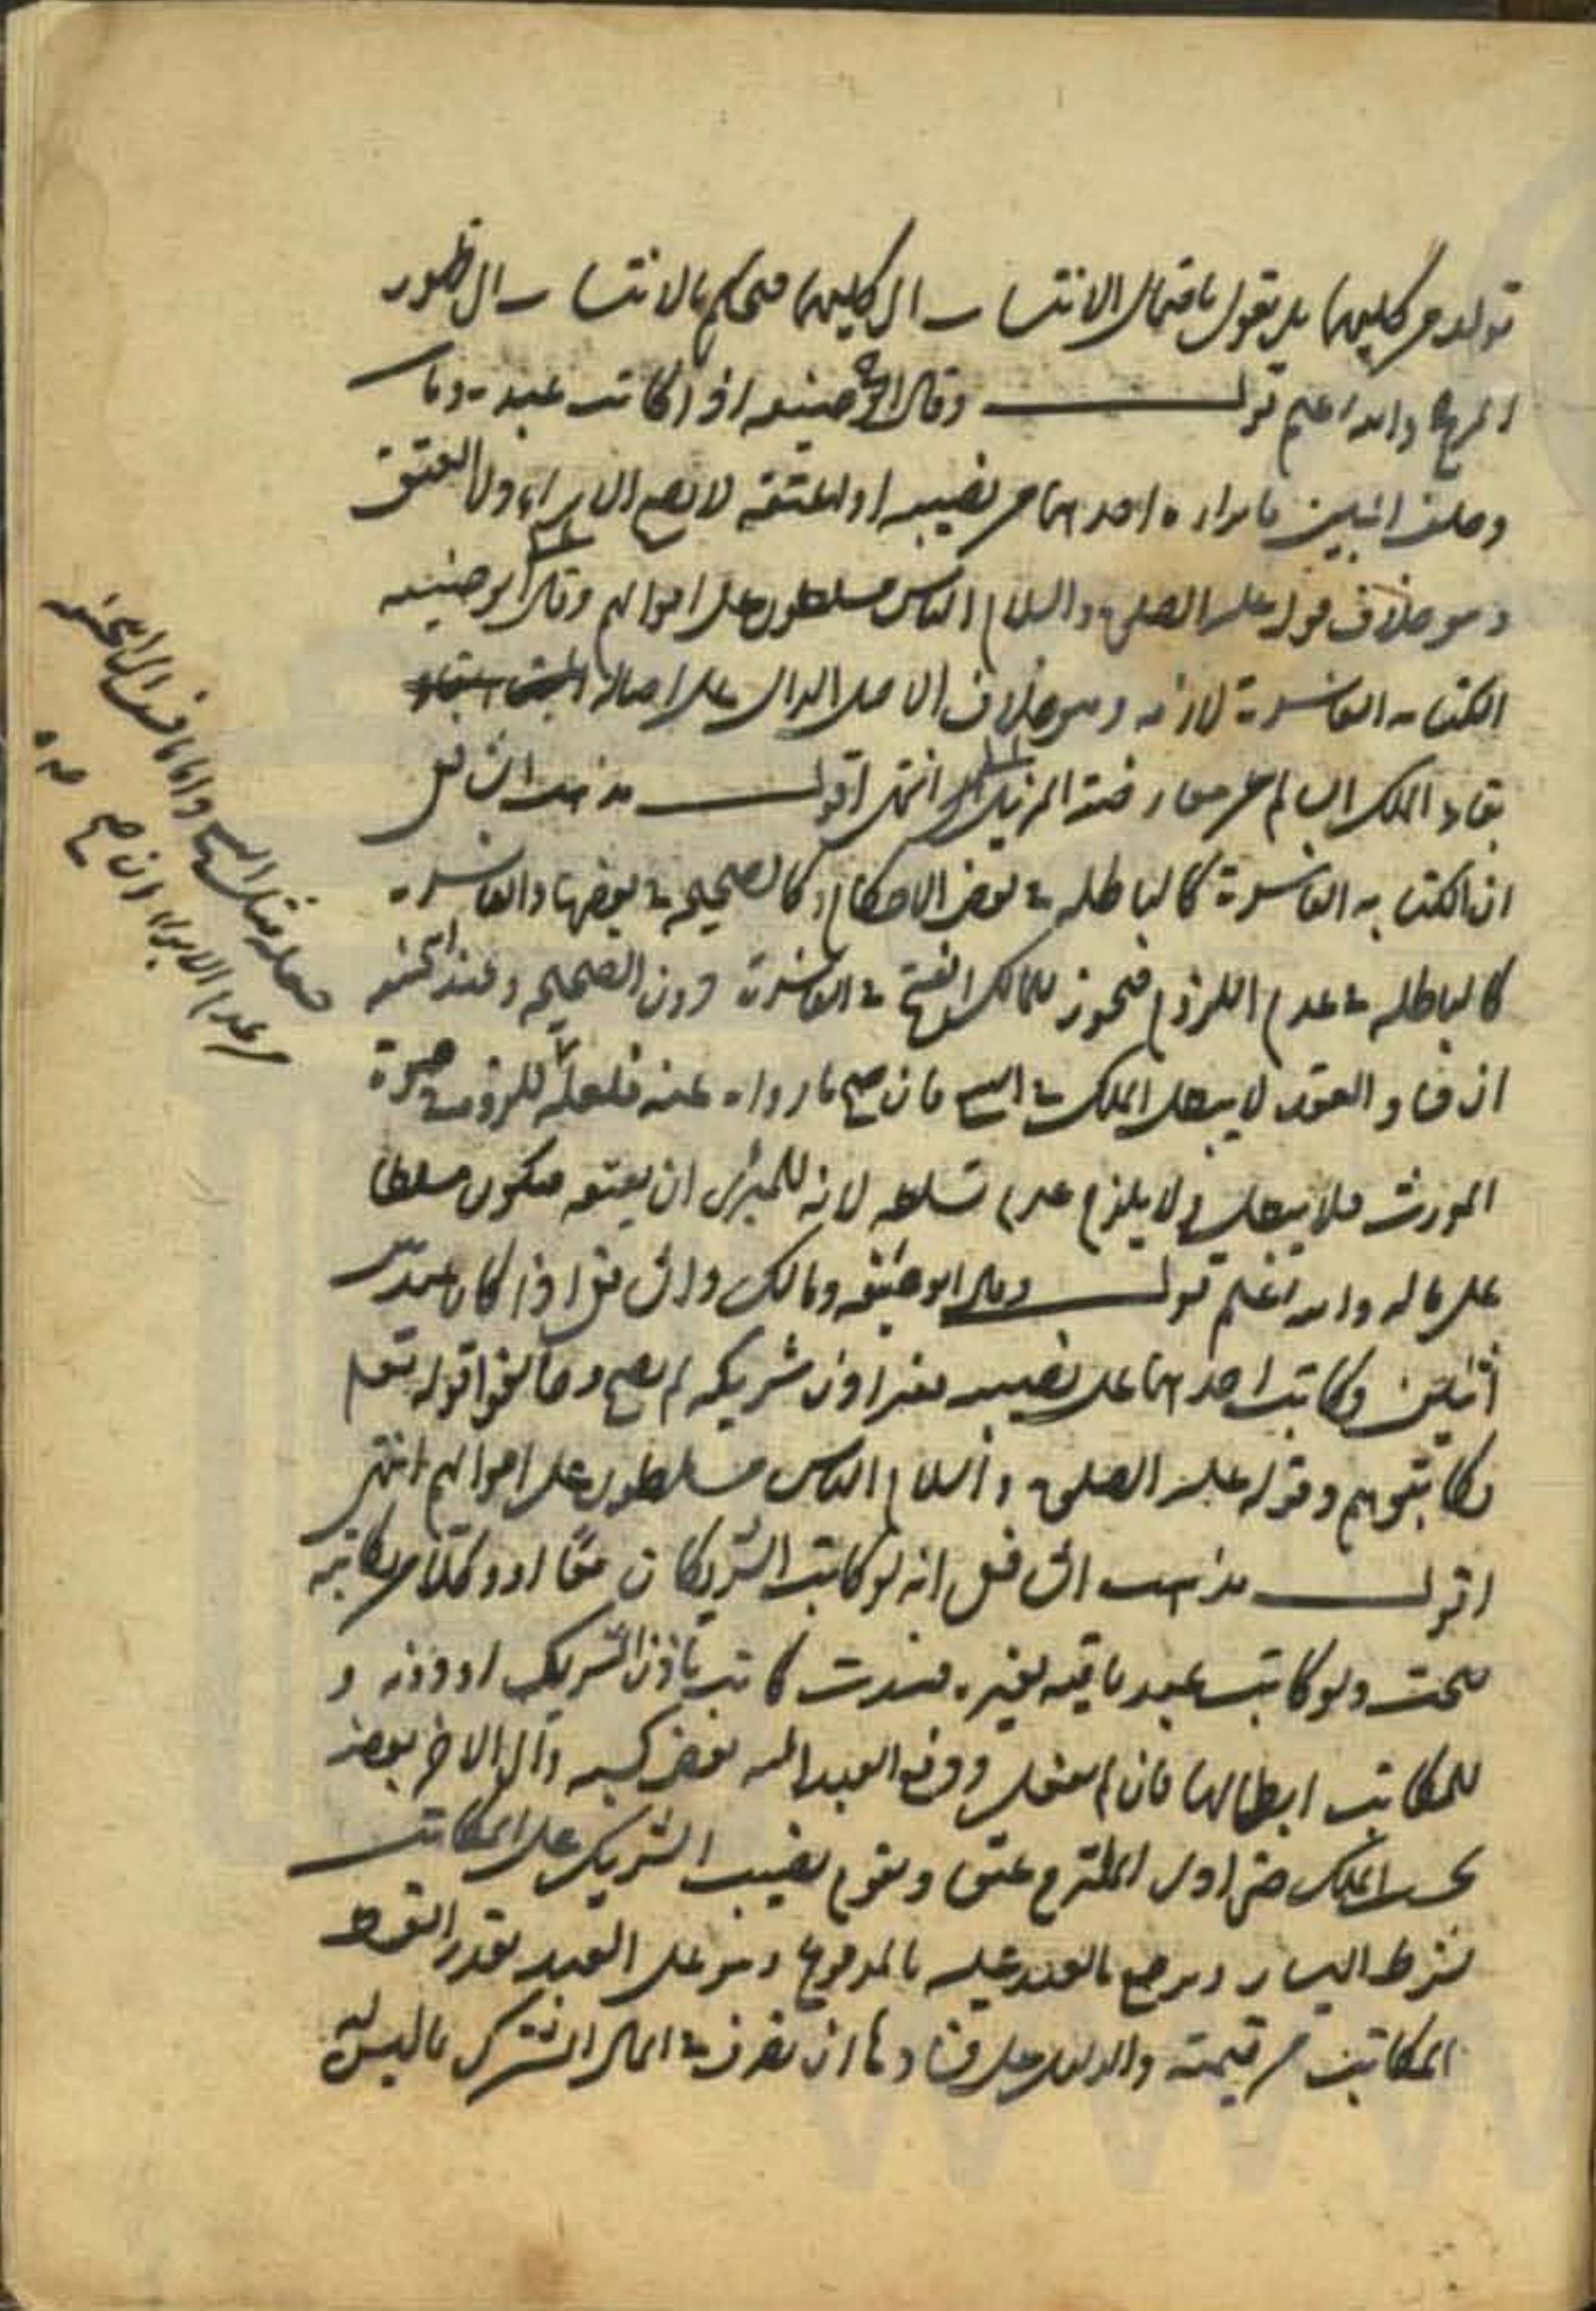 تولد من كليهما بل نقول باحتمال الانتساب الى كليهما فيحكم بالانتساب الى ظهور
المرجح والله اعلم قوله وقال ابو حنيفه اذا كاتب عبده ومات
وخلف اثنين فابراه احدهما من نصيبه او اعتقه لا يصح الابراء ولا العتق
وهو خلاف قوله عليه الصلوة والسلام الناس مسلطون على اموالهم وقال ابو حنيفه
الكتابه الفاسدة لازمه وهو خلاف الاصل الدال على اصاله
بقاء الملك السالم عن معارضة المزيل انتهى اقول مذهب الشافعي
ان الكتابه الفاسدة كالباطله في بعض الاحكام وكالصحيحه في بعضها والفاسدة
كالباطله في عدم اللزوم فيجوز للمالك الفسخ في الفاسدة دون الصحيحه وعند الحنفيه
ان فساد العقود لا يبطل الملك في البيع فان صح ما رواه عنه فلعله للزومه في حيوة
المورث فلا يبطل ولا يلزم عدم تسلطه لانه للمبرئ ان يعتقه فيكون مسلطا
على ماله والله اعلم قوله وقال ابو حنيفه ومالك والشافعي اذا كان عبد بين
اثنين وكاتب احدهما على نصيبه بغير اذن شريكه لم يصح وخالفوا قوله تعالى
فكاتبوهم وقوله عليه الصلوة والسلام الناس مسلطون على اموالهم انتهى
اقول مذهب الشافعي انه لو كاتب الشريكان معا او وكلا من يكاتبه
صحت ولو كاتب عبدا باقيه لغيره فسدت كاتب باذن الشريك او دونه و
للمكاتب ابطالها فان لم يفعل ودفع العبد اليه بعض كسبه والى الاخر بعضه
بحسب الملك حتى ادى الملتزم عتق ويقوم نصيب الشريك على المكاتب
بشرط اليسار ويرجع العبد عليه بالمدفوع وهو على العبد بقدر القسط
المكاتب من قيمته والدليل على فسادها ان تصرف في المال المشترك ما ليس له